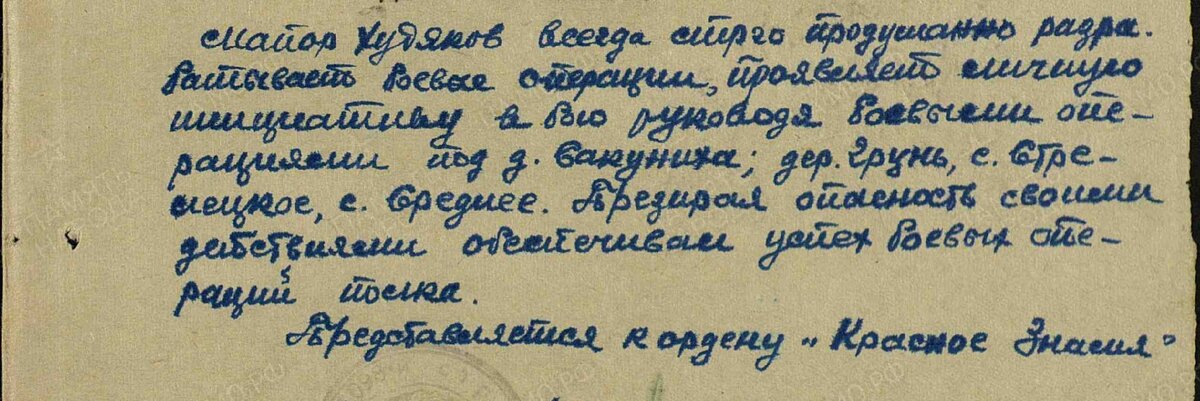 майор Худяков всегда строго продуманно разра-
батывает боевые операции, проявляет личную
инициативу в бою руководя боевыми опе-
рациями под д. Вакуниха; дер. Грунь, с. Стре-
лецкое, с. Среднее. Презирая опасность своими
действиями обеспечивал успех боевых опе-
раций полка.
Представляется к ордену „Красное Знамя"